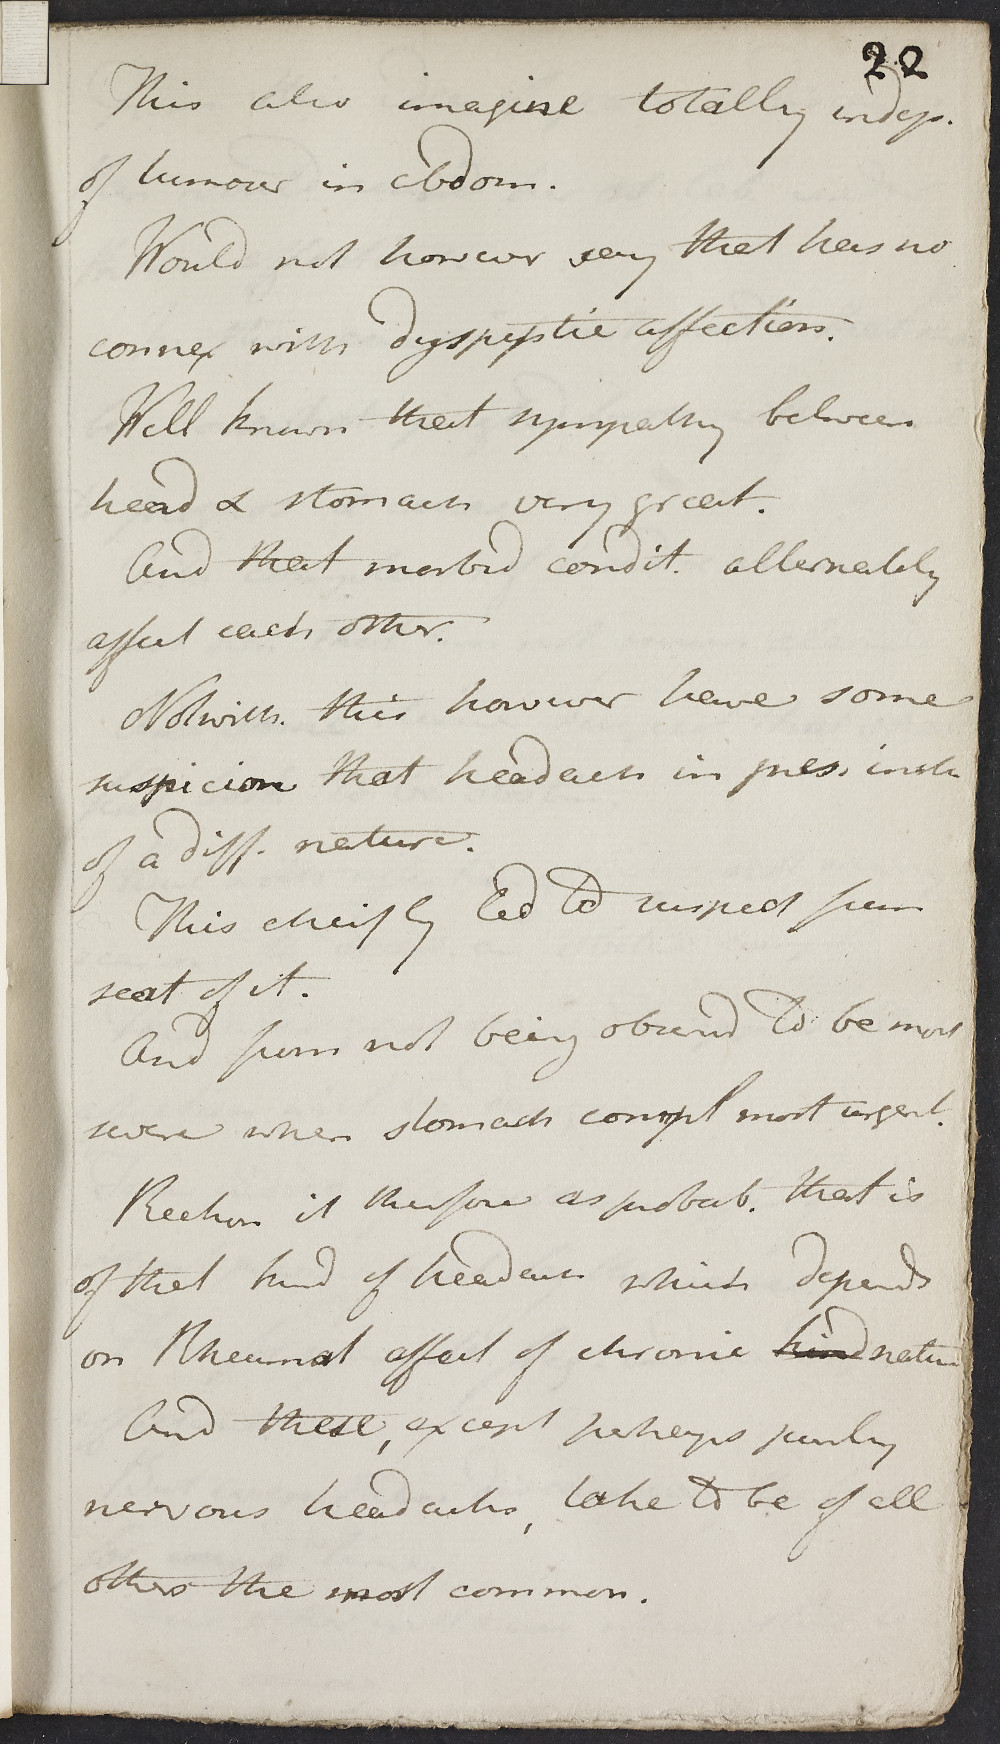 22
This also imagine totally indep.
of tumour in abdom.
Would not however say that has no
connex with dyspeptic affections.
Well known that sympathy between
head & stomach very great.
And that morbid condit. alternately
affect each other.
Notwith. this however have some
suspicion that headach in pres. inst.
of a diff. nature.
This cheifly led to suspect from
seat of it.
And from not being observd to be most
severe when stomach compl most urgent.
Reckon it therefore as probab. that is
of that kind of headach which depends
on Rheumat affect of chronic kind nature
And these, except perhaps purely
nervous headachs, take to be of all
others the most common.